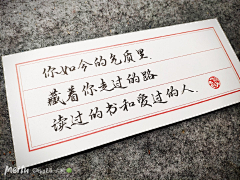 你如今的气质里.
藏着你走过的路
读过的书和爱过的人.